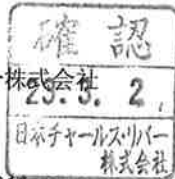 確認
株式会社
23.3.2,
日本チャールス・リバー
株式会社